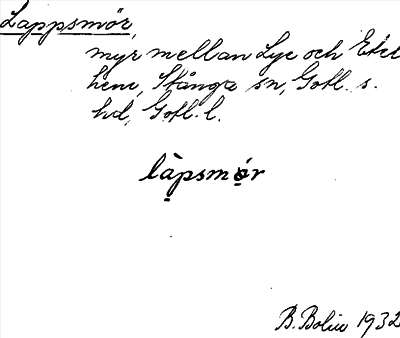 Lappsmör,
myr mellan Lye och Etel
hem, Stånga sn, Gotl. s.
hd, Gotl. l.
làpsmör
B. Bolin 1932